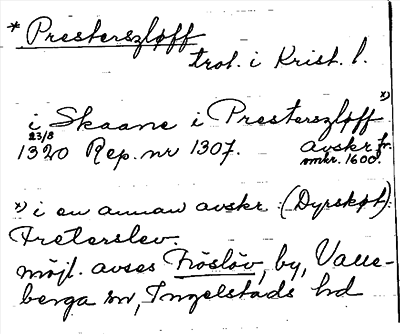 * Presterszløff
trol. i Krist. l.
*)
i Skaane i Presterszløff
23/8
1320 Rep. nr 1307. avskr. fr.
omkr. 1600.
*) i en annan avskr. (Dyrskøt):
Freterslev.
möjl. avses Fröslöv, by, Valle-
berga sn, Ingelstads hd